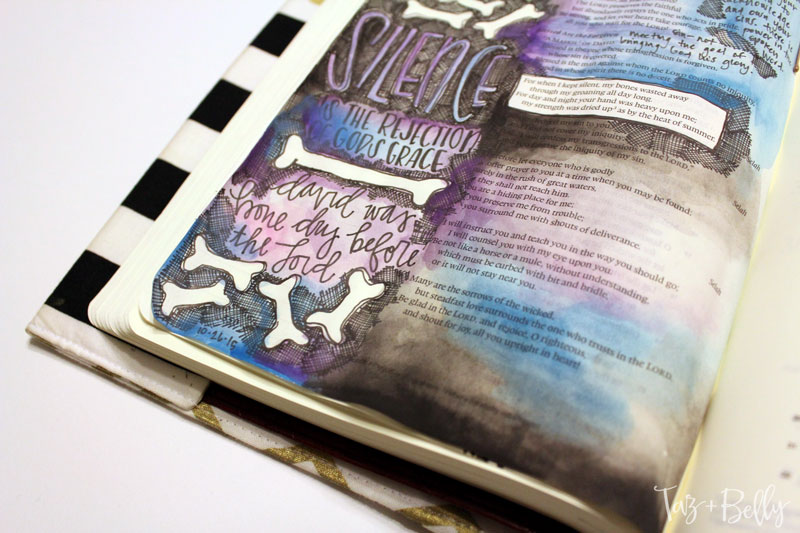 SILENCE
IS THE REJECTION
OF GOD'S GRACE
david was
bone dry before
the Lord
10·26·15
and own
sins. God's
power is
spoken in
meets sin - not
bringing the goal of
God his glory.
The LORD preserves the faithful
the one who acts in pride.
and let your heart take courage,
all you who wait for the LORD!
transgression is forgiven,
is the man against whom the LORD counts no iniquity,
and in whose spirit there is no deceit.
For when I kept silent, my bones wasted away
through my groaning all day long.
For day and night your hand was heavy upon me;
my strength was dried up as by the heat of summer. Selah
my iniquity;
transgressions to the LORD,"
the iniquity of my sin. Selah
let everyone who is godly
prayer to you at a time when you may be found;
in the rush of great waters,
they shall not reach him.
You are a hiding place for me;
you preserve me from trouble;
you surround me with shouts of deliverance. Selah
I will instruct you and teach you in the way you should go;
I will counsel you with my eye upon you.
Be not like a horse or a mule, without understanding,
which must be curbed with bit and bridle,
or it will not stay near you. Selah
Many are the sorrows of the wicked,
but steadfast love surrounds the one who trusts in the LORD.
Be glad in the LORD, and rejoice, O righteous,
and shout for joy, all you upright in heart!
Taz + Belly